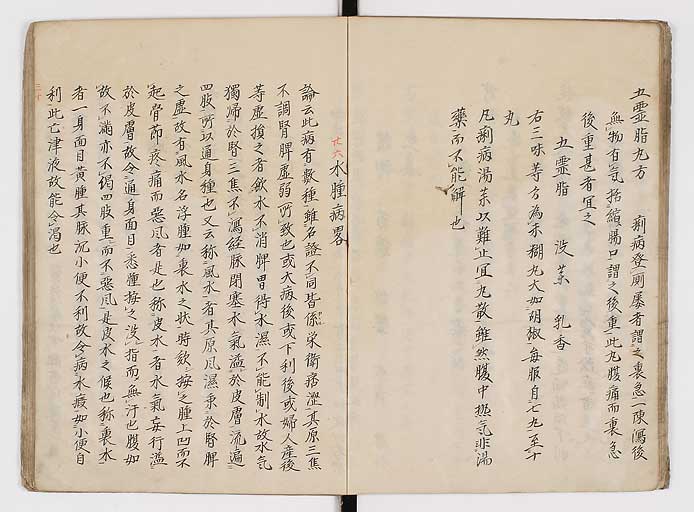 五霊脂丸方　痢病登厠屡者謂之裏急一陳瀉後
無物有気括縮腸口謂之後重此丸腹痛而裏急
後重甚者宜之
五霊脂　没薬　乳香
右三味等分為末糊丸大如胡椒毎服自七丸至十
丸
凡痢病湯薬以難止宜丸散雖然腹中熱気非湯
薬而不能解也
廿六水腫病畧
論云此病有数種雖名證不同皆係栄衛痞澀其原三焦
不調腎脾虚弱所致也或大病後或下利後或婦人産後
等虚損之者飲水不消脾胃得水濕不能制水故水気
獨帰於腎三焦不瀉経脉閉塞水気溢於皮膚流遍
四肢所以通身種也又云称風水者其原風濕乗於腎脾
之虚故有風水名浮腫如裹水之状時欬按之腫上凹而不
起骨節疼痛而悪風者是也称皮水者水気妄行溢
於皮膚故令通身面目悉腫按之没指而無汗也腹如
故不満亦不渇四肢重而不悪風是皮水之候也称裏水
者一身面目黄腫其脉沉小便不利故令病水鍰如小便自
利此亡津液故能令渇也
三十